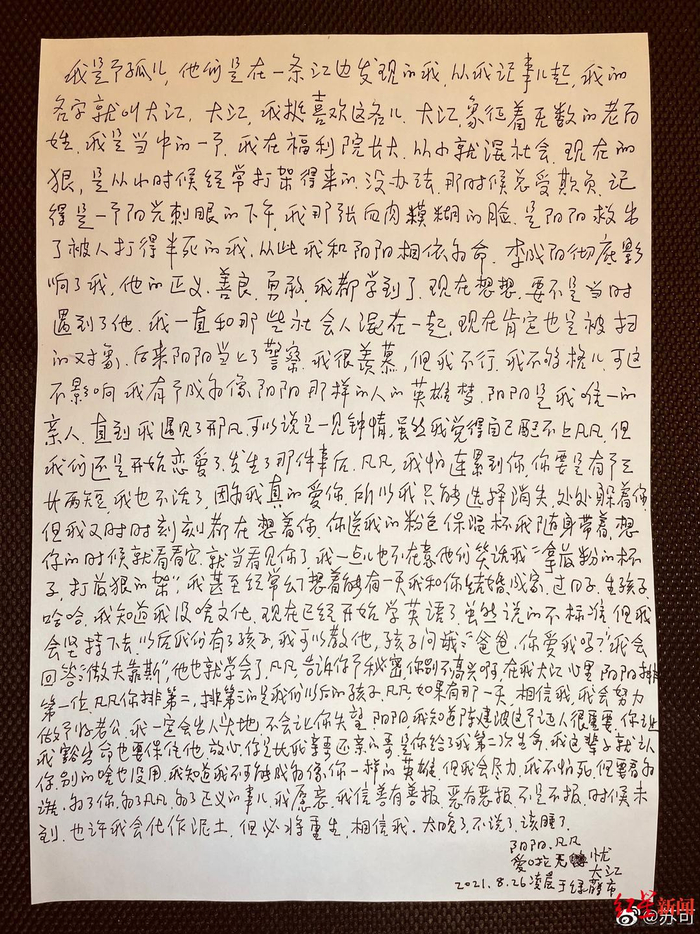 我是个孤儿，他们是在一条江边发现的我，从我记事儿起，我的
名字就叫大江，大江，我挺喜欢这名儿，大江，象征着无数的老百
姓，我是当中的一个，我在福利院长大，从小就混社会，现在的
狠，是从小时候经常打架得来的，没办法，那时候总受欺负，记
得是一个阳光刺眼的下午，我那张血肉糢糊的脸，是阳阳救出
了被人打得半死的我，从此我和阳阳相依为命，李成阳彻底影
响了我，他的正义，善良，勇敢，我都学到了，现在想想，要不是当时
遇到了他，我一直和那些社会人混在一起，现在肯定也是被扫
的对象，后来阳阳当上了警察，我很羡慕，但我不行，我不够格儿，可这
不影响我有个成为像阳阳那样的人的英雄梦，阳阳是我唯一的
亲人，直到我遇见了邢凡，可以说是一见钟情，虽然我觉得自己配不上凡凡，但
我们还是开始恋爱了，发生了那件事后，凡凡，我怕连累到你，你要是有个三
长两短，我也不活了，因为我真的爱你，所以我只能选择消失，处处躲着你，
但我又时时刻刻都在想着你，你送我的粉色保温杯我随身带着，想
你的时候就看看它，就当看见你了，我一点儿也不在意他们笑话我"拿最粉的杯
子，打最狠的架"，我甚至经常幻想着能有一天我和你结婚，成家，过日子，生孩子，
哈哈，我知道我没啥文化，现在已经开始学英语了，虽然说的不标准，但我
会坚持下去，以后我们有了孩子，我可以教他，孩子问我："爸爸，你爱我吗？"我会
回答："傲夫靠斯"，他也就学会了，凡凡，告诉你个秘密，你别不高兴啊，在我大江心里，阳阳排
第一位，凡凡你排第二，排第三的是我们以后的孩子，凡凡，如果有那一天，相信我，我会努力
做个好老公，我一定会出人头地，不会让你失望，阳阳，我知道陈建波这个证人很重要，你让
我豁出命也要保住他，放心，你是比我亲哥还亲的哥，是你给了我第二次生命，我这辈子就认
你，别的啥也没用，我知道我不可能成为像你一样的英雄，但我会尽力，我不怕死，但要看为
谁，为了你，为了凡凡，为了正义的事儿，我愿意，我信善有善报，恶有恶报，不是不报，时候未
到，也许我会化作泥土，但必将重生，相信我，太晚了，不说了，该睡了。
阳阳、凡凡
爱哦无忧
大江
2021.8.26凌晨于绿藤市
红星新闻
@苏可